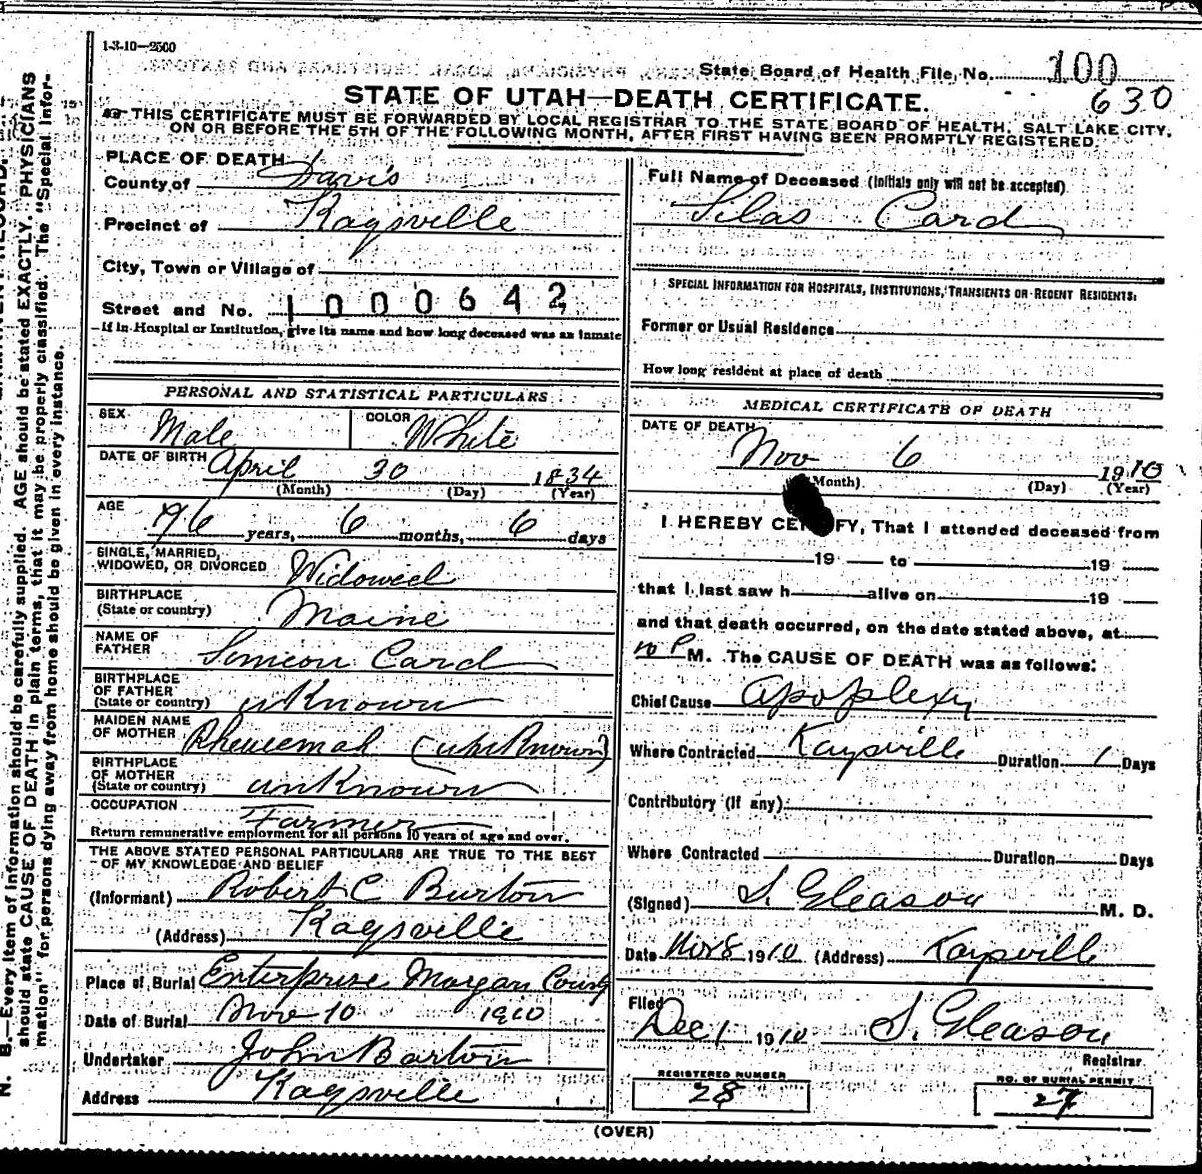 1-3-10—2500
State Board of Health File No. 100
630
STATE OF UTAH—DEATH CERTIFICATE.
THIS CERTIFICATE MUST BE FORWARDED BY LOCAL REGISTRAR TO THE STATE BOARD OF HEALTH, SALT LAKE CITY,
ON OR BEFORE THE 5TH OF THE FOLLOWING MONTH, AFTER FIRST HAVING BEEN PROMPTLY REGISTERED.
PLACE OF DEATH
County of Davis
Precinct of Kaysville
City, Town or Village of
Street and No. 1000642
If in Hospital or Institution, give its name and how long deceased was an inmate
Full Name of Deceased (Initials only will not be accepted)
Silas Card
SPECIAL INFORMATION FOR HOSPITALS, INSTITUTIONS, TRANSIENTS OR RECENT RESIDENTS:
Former or Usual Residence
How long resident at place of death
PERSONAL AND STATISTICAL PARTICULARS
SEX Male COLOR White
DATE OF BIRTH April 30 1834
(Month) (Day) (Year)
AGE 76 years, 6 months, 6 days
SINGLE, MARRIED,
WIDOWED, OR DIVORCED Widowed
BIRTHPLACE
(State or country) Maine
NAME OF
FATHER Simeon Card
BIRTHPLACE
OF FATHER
(State or country) unKnown
MAIDEN NAME
OF MOTHER (unKnown)
BIRTHPLACE
OF MOTHER
(State or country) unKnown
OCCUPATION Farmer
Return remunerative employment for all persons 10 years of age and over.
THE ABOVE STATED PERSONAL PARTICULARS ARE TRUE TO THE BEST
OF MY KNOWLEDGE AND BELIEF
(Informant) Robert C Burton
(Address) Kaysville
Place of Burial Enterprise Morgan County
Date of Burial Nov 10 1910
Undertaker John Barton
Address Kaysville
MEDICAL CERTIFICATE OF DEATH
DATE OF DEATH
Nov 6 1910
(Month) (Day) (Year)
I HEREBY CERTIFY, That I attended deceased from
19 to 19
that I last saw h alive on 19
and that death occurred, on the date stated above, at
10 P M. The CAUSE OF DEATH was as follows:
Chief Cause apoplexy
Where Contracted Kaysville Duration 1 Days
Contributory (if any)
Where Contracted Duration Days
(Signed) S. Gleason M. D.
Date Nov 8 1910 (Address) Kaysville
Filed
Dec 1 1910 S. Gleason
Registrar
REGISTERED NUMBER
28
NO. OF BURIAL PERMIT
27
(OVER)
N. B.—Every item of information should be carefully supplied. AGE should be stated EXACTLY. PHYSICIANS
should state CAUSE OF DEATH in plain terms, that it may be properly classified. The "Special Infor-
mation" for persons dying away from home should be given in every instance.